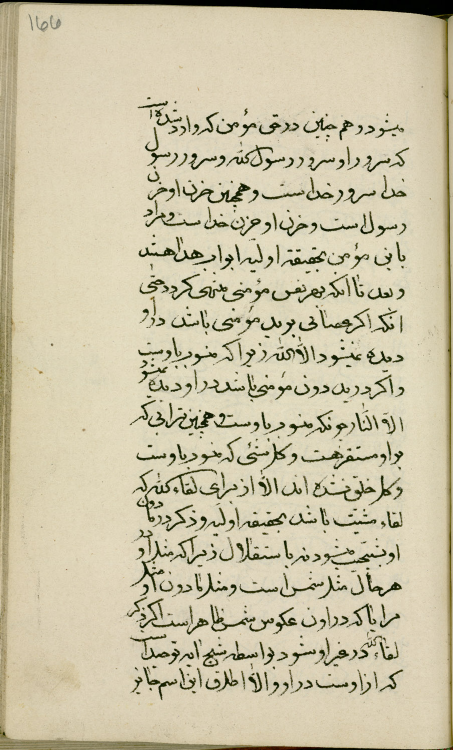 ۱۶۶
میشود و هم چنین در حق مؤمن که وارد شده است
که سرور او سرور رسول الله و سرور رسول
خدا سرور خداست و همچنین حزن او حزن
رسول است و حزن او حزن خداست و مراد
باین مؤمن بحقیقته اولیه ابواب هدا هستند
و بعد تا آنکه بهر نفس مؤمنی منتهی گردد حتی
آنکه اگر عصائی بوید مؤمنی باشد در او
دیده نمیشود الا الله زیرا که منسوب باوست
و اگر در ید دون مؤمنی باشد در او دیده نمیشود
الا النار چونکه منسوب باوست و همچنین ترابی که
بر او مستقر هست و کل شئی که منسوب باوست
و کل خلق نشده اند الا از برای لقاء الله که
لقاء مشیت باشد بحقیقته اولیه و ذکر در مادون
او نمیشود نه باستقلال زیرا که مثل او در
هر حال مثل شمس است و مثل مادون او مثل
مرایا که در اون عکوس شمس ظاهر است اگر ذکر
لقاء الله در غیر او شود بواسطه شبح آیه توحید است
که از اوست در او و الا اطلاق این اسم جایز